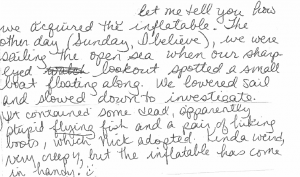 Let me tell you how
we acquired this inflatable. The
other day (Sunday, I believe), we were
sailing the open sea when our sharp
eyed lookout spotted a small
boat floating along. We lowered sail
and slowed down to investigate.
It contained some dead, apparently
stupid flying fish and a pair of hiking
boots, which Nick adopted. Kinda weird,
very creepy, but the inflatable has come
in handy.